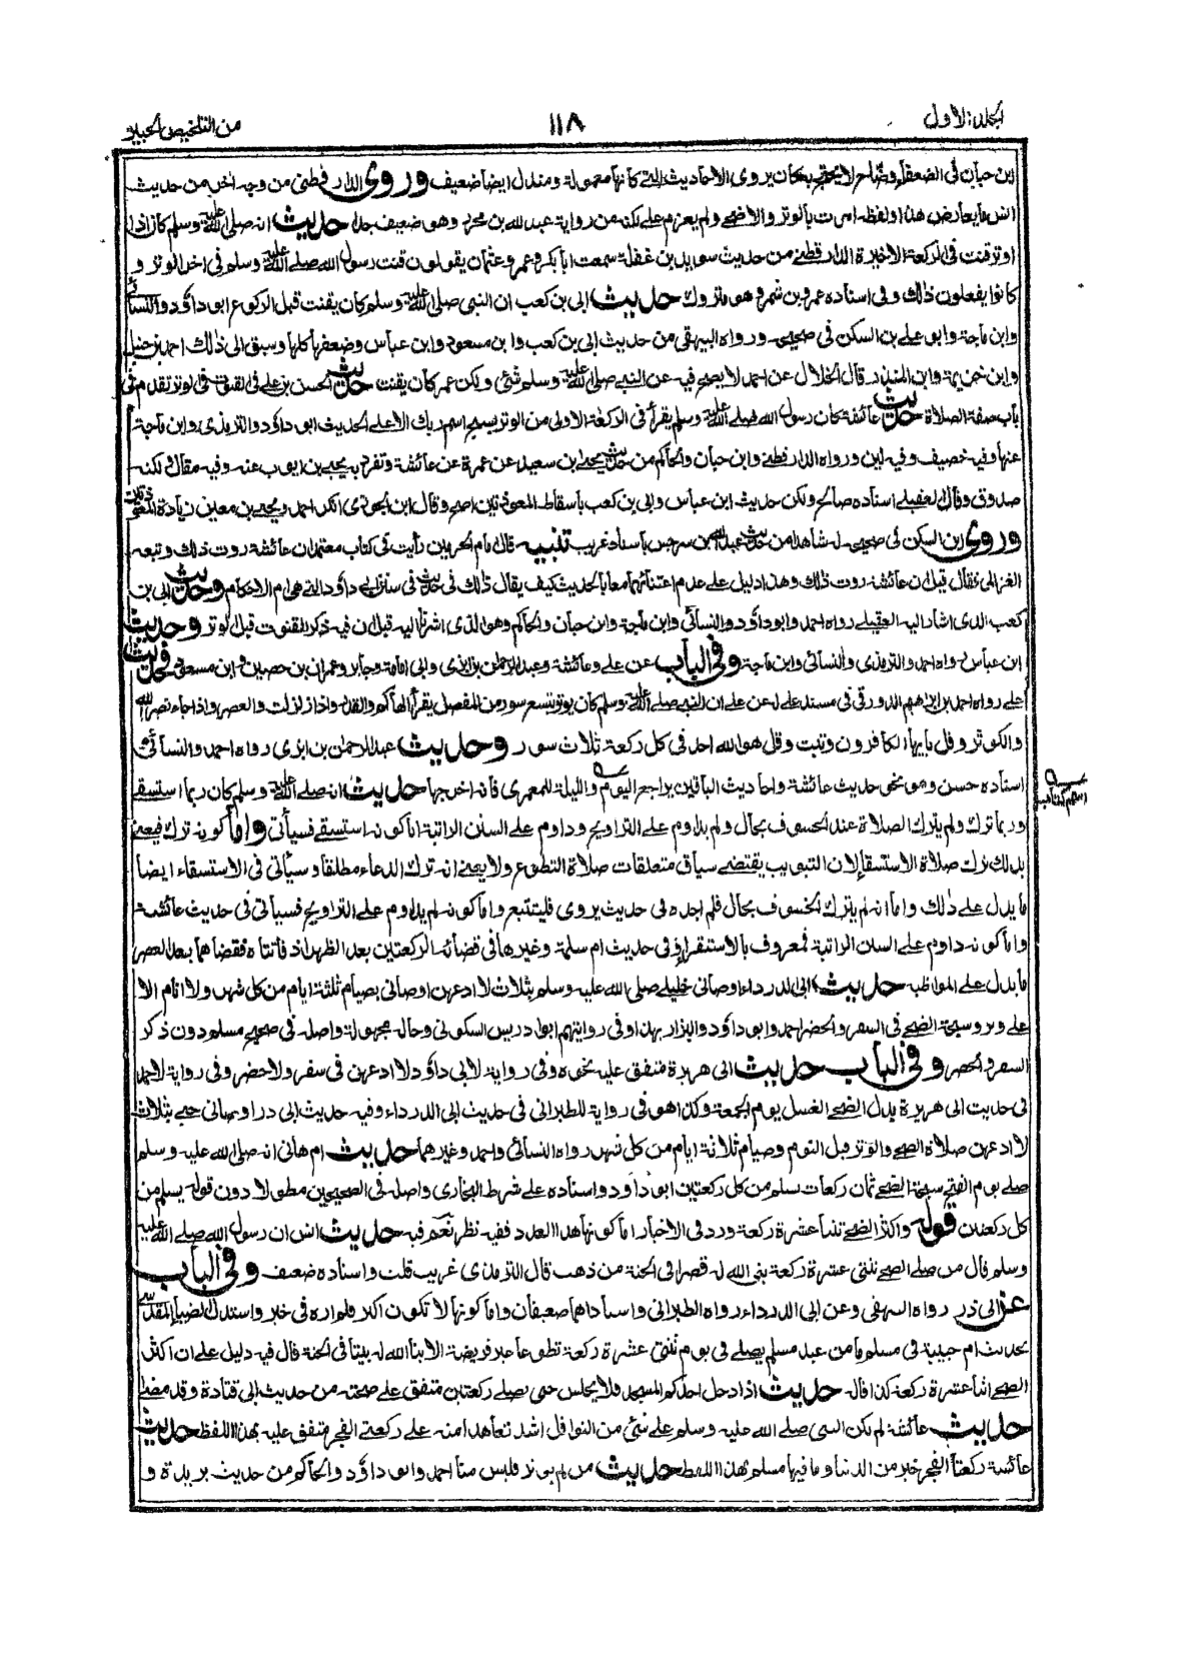 الجلد الاول
١١٨
من التلخيص الحبير
ابن حبان في الضعفاء وضاح لا يحتج به كان يروى الاحاديث التي كانها معمولة ومندل ايضا ضعيف وروى الدارقطنى من وجه اخر من حديث
انس ما يعارض هذا ولفظه امرت بالوتر والاضحى ولم يعزم على لكنه من رواية عبد الله بن محرر وهو ضعيف جدا حديث انه صلى الله عليه وسلم كان اذا
اوتر قنت في الركعة الاخيرة الدارقطنى من حديث سويد بن غفلة سمعت ابا بكر وعمر وعثمان يقولون قنت رسول الله صلى الله عليه وسلم في اخر الوتر و
كانوا يفعلون ذلك وفي اسناده عمرو بن شمر وهو متروك حديث ابي بن كعب ان النبي صلى الله عليه وسلم كان يقنت قبل الركوع ابو داؤد والنسائي
وابن ماجة وابو على بن السكن في صحيحه ورواه البيهقي من حديث ابي بن كعب وابن مسعود وابن عباس وضعفها كلها وسبق الى ذلك احمد بن حنبل
وابن خزيمة وابن المنذر قال الخلال عن احمد لا يصح فيه عن النبي صلى الله عليه وسلم شئ ولكن عمر كان يقنت حديث الحسن بن على في القنوت في الوتر تقدم في
باب صفة الصلاة حديث عائشة كان رسول الله صلى الله عليه وسلم يقرأ في الركعة الاولى من الوتر بسبح اسم ربك الاعلى الحديث ابو داؤد والترمذى وابن ماجة
عنها وفيه خصيف وفيه لين ورواه الدارقطنى وابن حبان والحاكم من حديث يحيى بن سعيد عن عمرة عن عائشة وتفرد به يحيى بن ايوب عنه وفيه مقال ولكنه
صدوق وقال العقيلى اسناده صالح ولكن حديث ابن عباس وابى بن كعب باسقاط المعوذتين اصح وقال ابن الجوزى انكر احمد ويحيى بن معين زيادة المعوذتين
وروى ابن السكن في صحيحه له شاهدا من حديث عبد الله بن سرجس باسناد غريب تنبيه قال امام الحرمين رأيت في كتاب معتمد ان عائشة روت ذلك وتبعه
الغزالى فقال قيل ان عائشة روت ذلك وهذا دليل على عدم اعتنائهما معا بالحديث كيف يقال ذلك في حديث في سنن ابى داؤد التي هى ام الاحكام وحديث ابي بن
كعب الذى اشار اليه العقيلى رواه احمد وابو داؤد والنسائي وابن ماجة وابن حبان والحاكم وهو الذى اشرنا اليه قبل ان فيه ذكر القنوت قبل الوتر وحديث
ابن عباس رواه احمد والترمذى والنسائي وابن ماجة وفي الباب عن على وعائشة وعبد الرحمن بن ابزى وابى امامة وجابر وعمران بن حصين وابن مسعود فحديث
على رواه احمد بن ابراهيم الدورقى في مسند على له عن على ان النبي صلى الله عليه وسلم كان يوتر بتسع سور من المفصل يقرأ الهاكم والقدر واذا زلزلت والعصر واذا جاء نصر الله
والكوثر وقل يا ايها الكافرون وتبت وقل هو الله احد في كل ركعة ثلاث سور وحديث عبد الرحمن بن ابزى رواه احمد والنسائي
اسناده حسن وهو نحو حديث عائشة واحاديث الباقين يراجع اليوم والليلة للمعمرى فانه اخرجها حديث انه صلى الله عليه وسلم كان ربما استسقى
اسم كتاب
وربما ترك ولم يترك الصلاة عند الخسوف بحال ولم يداوم على التراويح وداوم على السنن الراتبة اما كونه استسقى فسيأتى واما كونه ترك فيعنى
بذلك ترك صلاة الاستسقاء لان التبويب يقتضى سياق متعلقات صلاة التطوع ولا يعنى انه ترك الدعاء مطلقا وسيأتى في الاستسقاء ايضا
ما يدل على ذلك واما انه لم يترك الخسوف بحال فلم اجده في حديث يروى فليتتبع واما كونه لم يداوم على التراويح فسيأتى في حديث عائشة
واما كونه داوم على السنن الراتبة فمعروف بالاستقراء في حديث ام سلمة وغيرها في قضائه الركعتين بعد الظهر اذ فاتتاه فقضاهما بعد العصر
ما يدل على المواظبة حديث ابى الدرداء اوصانى خليلى صلى الله عليه وسلم بثلاث لا ادعهن اوصانى بصيام ثلثة ايام من كل شهر ولا انام الا
على وتر وسبحة الضحى في السفر والحضر احمد وابو داؤد والبزار بهذا وفي روايتهم ابو ادريس السكونى وحاله مجهولة واصله في صحيح مسلم دون ذكر
السفر والحضر وفي الباب حديث ابى هريرة متفق عليه بنحوه وفي رواية لابى داؤد لا ادعهن في سفر ولا حضر وفي رواية لاحمد
في حديث ابى هريرة بدل الضحى الغسل يوم الجمعة وكذا هو في رواية للطبرانى في حديث ابى الدرداء وفيه حديث ابى ذر اوصانى حبى بثلاث
لا ادعهن صلاة الضحى والوتر قبل النوم وصيام ثلاثة ايام من كل شهر رواه النسائي واحمد وغيرهما حديث ام هانئ انه صلى الله عليه وسلم
صلى يوم الفتح سبحة الضحى ثمان ركعات يسلم من كل ركعتين ابو داؤد واسناده على شرط البخارى واصله في الصحيحين مطولا دون قوله يسلم من
كل ركعتين قوله واكثر الضحى ثنتا عشرة ركعة ورد في الاخبار اما كونها هذا العدد ففيه نظر نعم فيه حديث انس ان رسول الله صلى الله عليه
وسلم قال من صلى الضحى ثنتى عشرة ركعة بنى الله له قصرا في الجنة من ذهب قال الترمذى غريب قلت واسناده ضعيف وفي الباب
عن ابى ذر رواه البيهقى وعن ابى الدرداء رواه الطبرانى واسناداهما ضعيفان واما كونها لا تكون اكثر فلم اره في خبر واستدل الضياء المقدسى
بحديث ام حبيبة في مسلم ما من عبد مسلم يصلى في يوم ثنتى عشرة ركعة تطوعا غير فريضة الا بنا الله له بيتا في الجنة قال فيه دليل على ان اكثر
الضحى اثنا عشرة ركعة كذا قال حديث اذا دخل احدكم المسجد فلا يجلس حتى يصلى ركعتين متفق على صحته من حديث ابى قتادة وقد مضى
حديث عائشة لم يكن النبى صلى الله عليه وسلم على شئ من النوافل اشد تعاهدا منه على ركعتى الفجر متفق عليه بهذا اللفظ حديث
عائشة ركعتا الفجر خير من الدنيا وما فيها مسلم بهذا اللفظ حديث من لم يوتر فليس منا احمد وابو داؤد والحاكم من حديث بريدة و